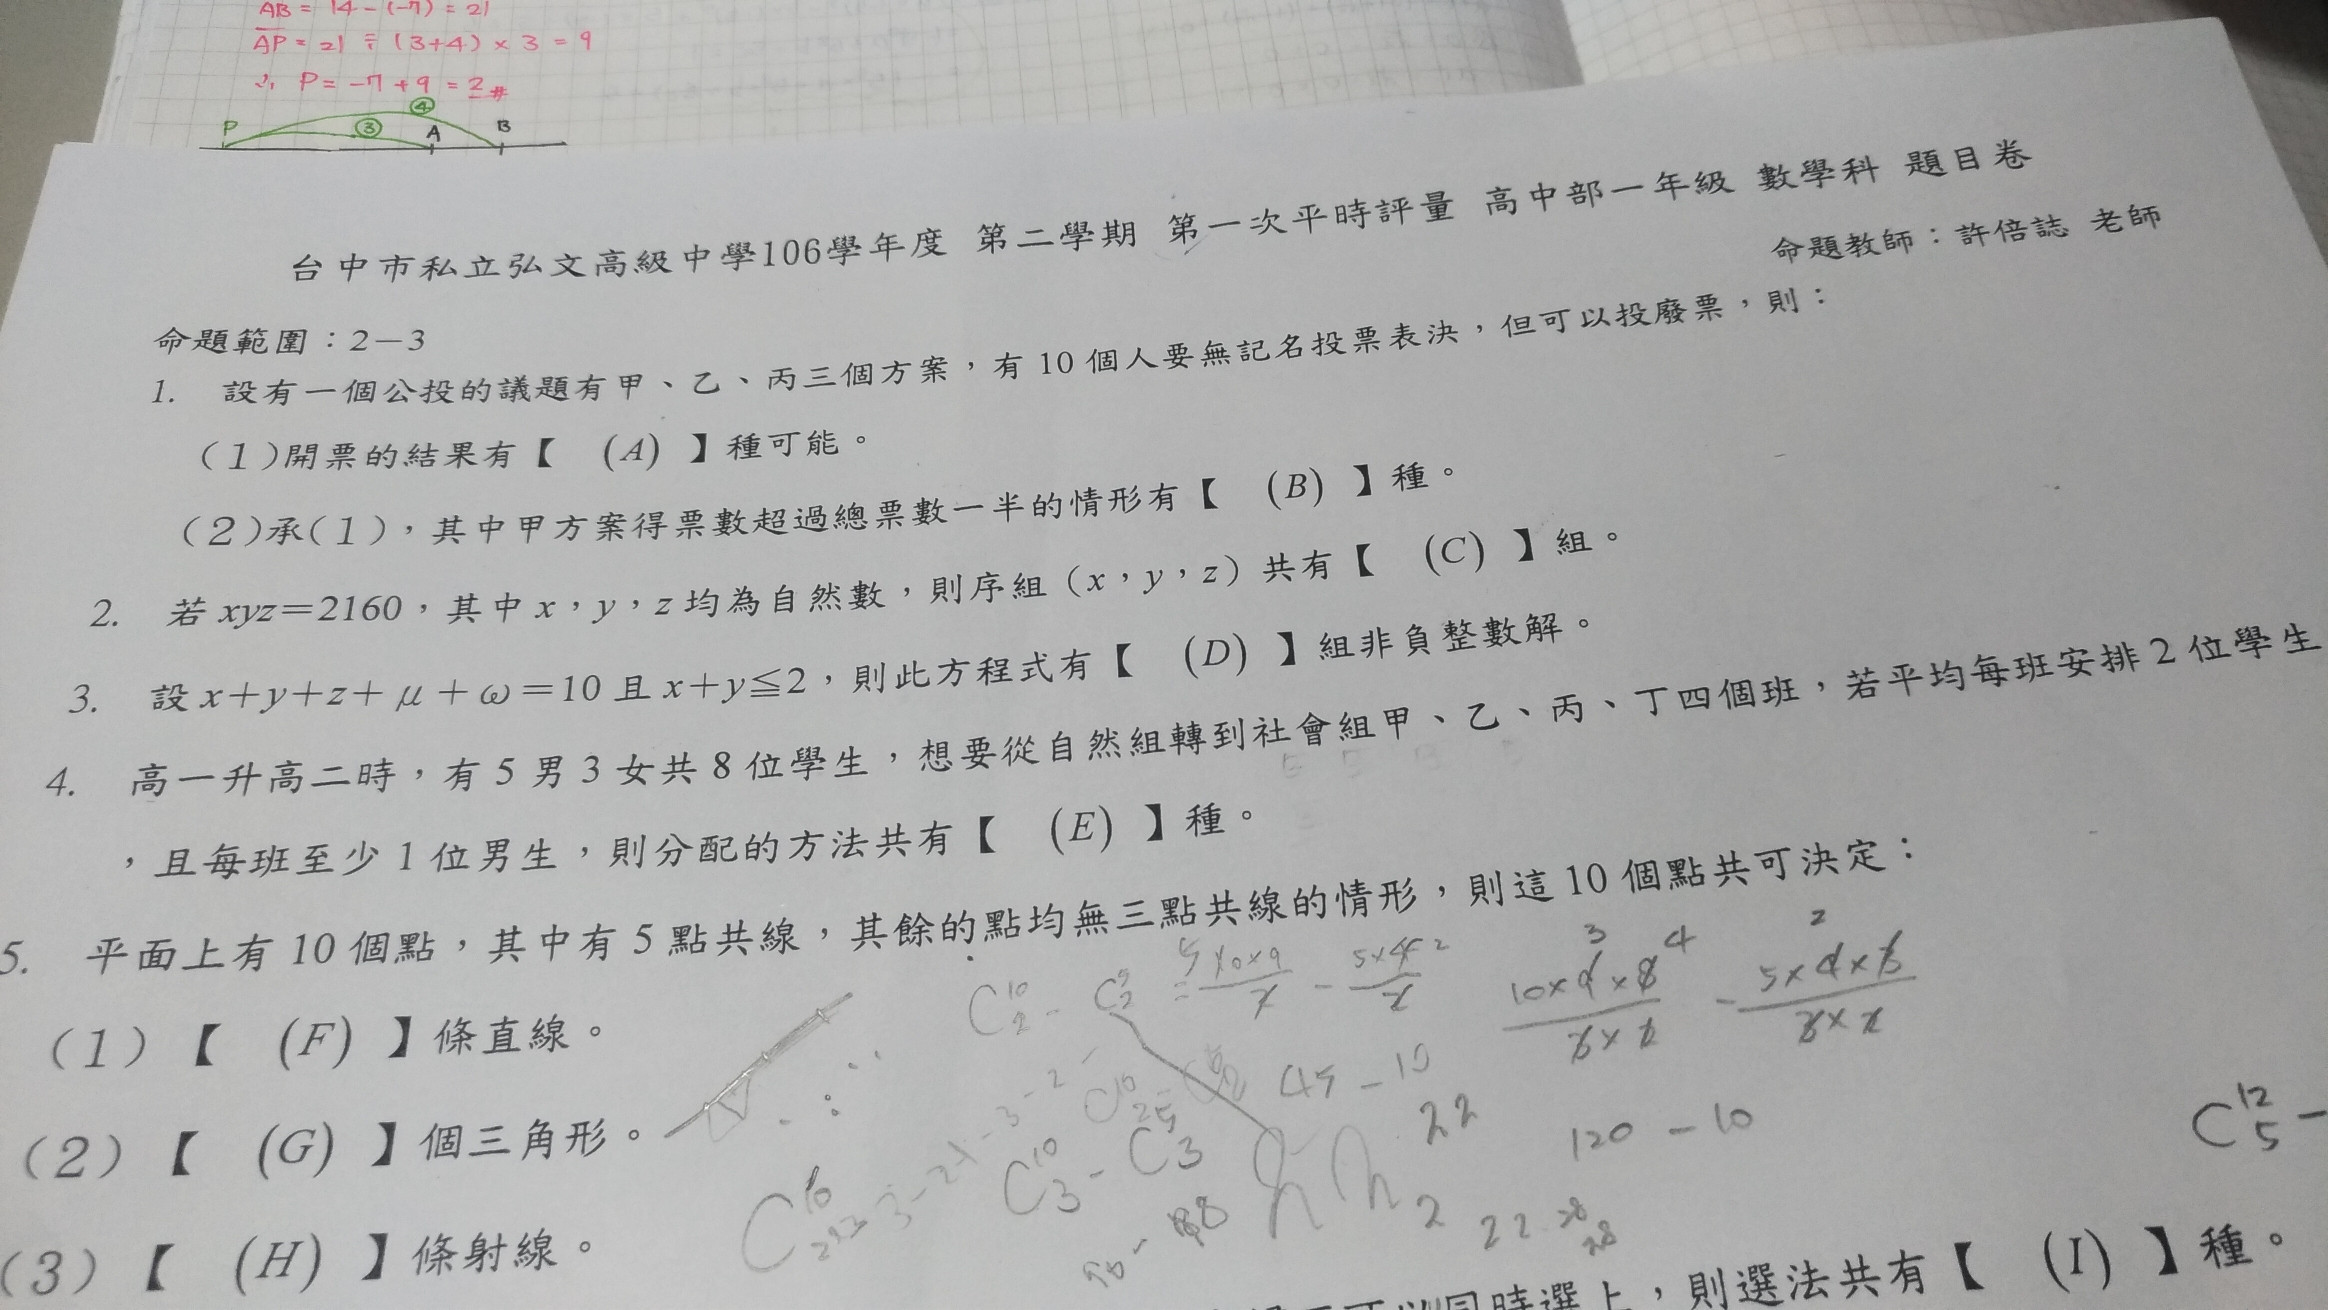 AB = 14 - (-7) = 21
AP = 21 ÷ (3+4) × 3 = 9
∴ P = -7 + 9 = 2 #
④
P ③ A B
台中市私立弘文高級中學106學年度 第二學期 第一次平時評量 高中部一年級 數學科 題目卷
命題教師：許倍誌 老師
命題範圍：2－3
1. 設有一個公投的議題有甲、乙、丙三個方案，有 10 個人要無記名投票表決，但可以投廢票，則：
（1)開票的結果有【 (A) 】種可能。
（2)承(1)，其中甲方案得票數超過總票數一半的情形有【 (B) 】種。
2. 若 xyz＝2160，其中 x，y，z 均為自然數，則序組（x，y，z）共有【 (C) 】組。
3. 設 x＋y＋z＋μ＋ω＝10 且 x＋y≦2，則此方程式有【 (D) 】組非負整數解。
4. 高一升高二時，有 5 男 3 女共 8 位學生，想要從自然組轉到社會組甲、乙、丙、丁四個班，若平均每班安排 2 位學生
，且每班至少 1 位男生，則分配的方法共有【 (E) 】種。
5. 平面上有 10 個點，其中有 5 點共線，其餘的點均無三點共線的情形，則這 10 個點共可決定：
（1）【 (F) 】條直線。
（2）【 (G) 】個三角形。
（3）【 (H) 】條射線。
45 - 10
22
120 - 10
同時選上，則選法共有【 (I) 】種。